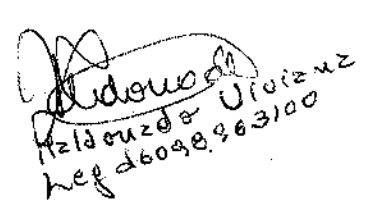 Maldonado
Maldonado Viviana
Leg d6098.963/00